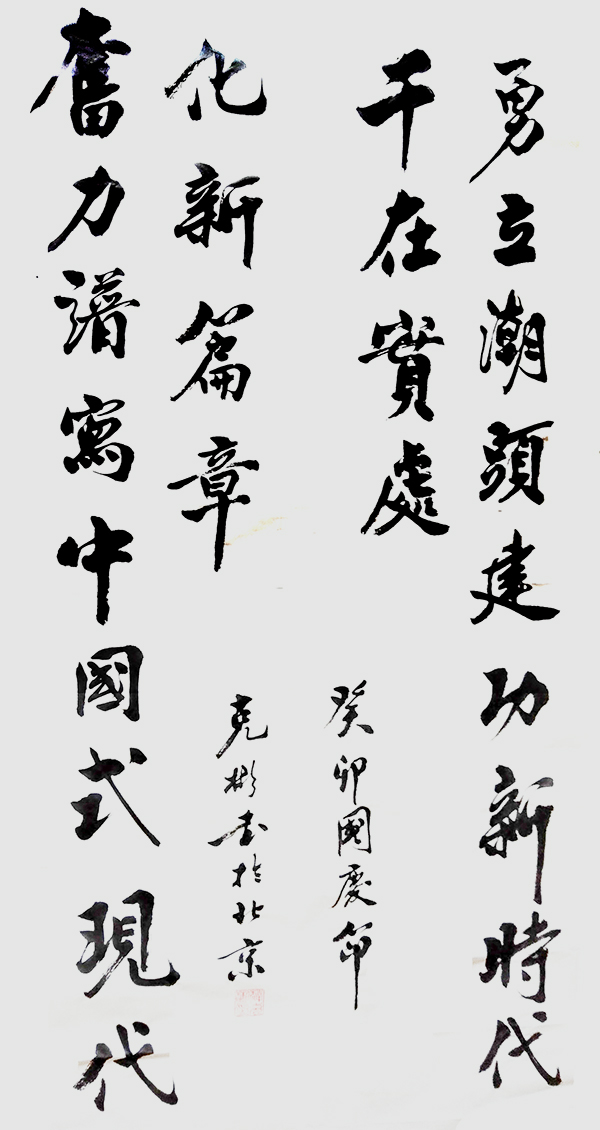 勇立潮頭建功新時代
干在實處
癸卯國慶節
奮力譜寫中國式現代
化新篇章
克彬書於北京